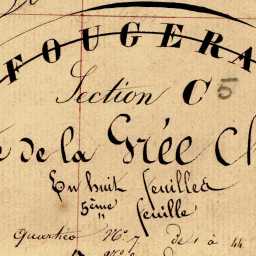 FOUGERA
Section C 5
de la Grée Ch
En huit feuilles
5ème feuille
Quartiéo No. 7 de 1 à 44